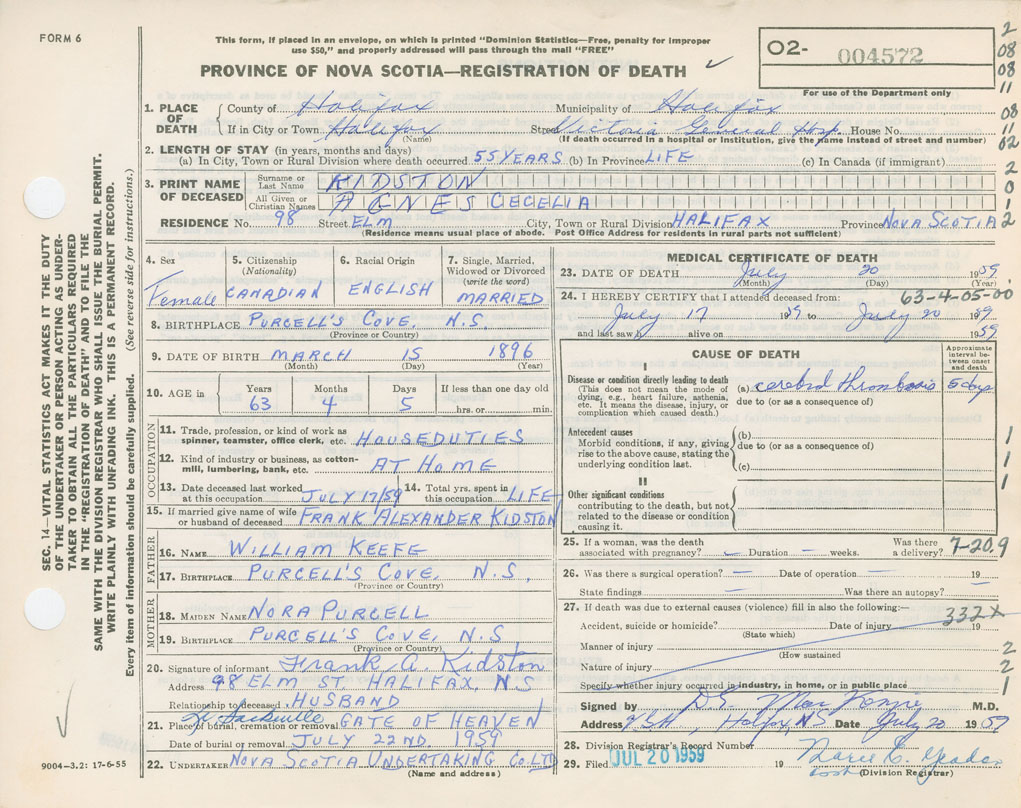 FORM 6
This form, if placed in an envelope, on which is printed "Dominion Statistics—Free, penalty for improper
use $50," and properly addressed will pass through the mail "FREE"
PROVINCE OF NOVA SCOTIA—REGISTRATION OF DEATH
O2- 004572
For use of the Department only
2
08
08
11
08
11
02
2
0
1
2
1. PLACE OF DEATH
County of Halifax Municipality of Halifax
If in City or Town Halifax Street Victoria General Hosp House No.
(Name) (If death occurred in a hospital or institution, give the name instead of street and number)
2. LENGTH OF STAY (in years, months and days)
(a) In City, Town or Rural Division where death occurred 55 YEARS (b) In Province LIFE (c) In Canada (if immigrant)
3. PRINT NAME OF DECEASED
Surname or Last Name KIDSTON
All Given or Christian Names AGNES CECELIA
RESIDENCE No. 98 Street ELM City, Town or Rural Division HALIFAX Province NOVA SCOTIA
(Residence means usual place of abode. Post Office Address for residents in rural parts not sufficient)
4. Sex Female
5. Citizenship (Nationality) CANADIAN
6. Racial Origin ENGLISH
7. Single, Married, Widowed or Divorced (write the word) MARRIED
8. BIRTHPLACE PURCELL'S COVE, N.S.
(Province or Country)
9. DATE OF BIRTH MARCH 15 1896
(Month) (Day) (Year)
10. AGE in Years 63 Months 4 Days 5 If less than one day old hrs. or min.
OCCUPATION
11. Trade, profession, or kind of work as
spinner, teamster, office clerk, etc. HOUSEDUTIES
12. Kind of industry or business, as cotton-
mill, lumbering, bank, etc. AT HOME
13. Date deceased last worked
at this occupation JULY 17/59
14. Total yrs. spent in
this occupation LIFE
15. If married give name of wife
or husband of deceased FRANK ALEXANDER KIDSTON
FATHER
16. NAME WILLIAM KEEFE
17. BIRTHPLACE PURCELL'S COVE, N.S.
(Province or Country)
MOTHER
18. MAIDEN NAME NORA PURCELL
19. BIRTHPLACE PURCELL'S COVE, N.S
(Province or Country)
20. Signature of informant Frank A. Kidston
Address 98 ELM ST. HALIFAX, N.S
Relationship to deceased HUSBAND
21. Place of burial, cremation or removal Sackville GATE OF HEAVEN
Date of burial or removal JULY 22ND. 1959
22. UNDERTAKER NOVA SCOTIA UNDERTAKING CO. LTD
(Name and address)
MEDICAL CERTIFICATE OF DEATH
23. DATE OF DEATH July 20 1959
(Month) (Day) (Year)
24. I HEREBY CERTIFY that I attended deceased from: 63-4-05-00
July 17 1959 to July 20 1959
and last saw h alive on 1959
CAUSE OF DEATH
Approximate interval between onset and death
I
Disease or condition directly leading to death
(This does not mean the mode of
dying, e.g., heart failure, asthenia,
etc. It means the disease, injury, or
complication which caused death.)
(a) cerebral thrombosis 5 days
due to (or as a consequence of)
Antecedent causes
Morbid conditions, if any, giving
rise to the above cause, stating the
underlying condition last.
(b)
due to (or as a consequence of)
(c)
II
Other significant conditions
contributing to the death, but not
related to the disease or condition
causing it.
1
1
1
25. If a woman, was the death
associated with pregnancy? – Duration – weeks. Was there a delivery? 7-20.9
26. Was there a surgical operation? – Date of operation – 19
State findings – Was there an autopsy? –
27. If death was due to external causes (violence) fill in also the following:—
Accident, suicide or homicide? Date of injury 19 332X
(State which)
Manner of injury 2
(How sustained
Nature of injury 2
Specify whether injury occurred in industry, in home, or in public place 1
Signed by M.D.
Address Halifax, N.S Date July 20 1959
28. Division Registrar's Record Number
29. Filed JUL 20 1959 19
(Division Registrar)
SEC. 14—VITAL STATISTICS ACT MAKES IT THE DUTY
OF THE UNDERTAKER OR PERSON ACTING AS UNDER-
TAKER TO OBTAIN ALL THE PARTICULARS REQUIRED
IN THE "REGISTRATION OF DEATH" AND TO FILE THE
SAME WITH THE DIVISION REGISTRAR WHO SHALL ISSUE THE BURIAL PERMIT.
WRITE PLAINLY WITH UNFADING INK. THIS IS A PERMANENT RECORD.
Every item of information should be carefully supplied. (See reverse side for instructions.)
9004-3.2: 17-6-55